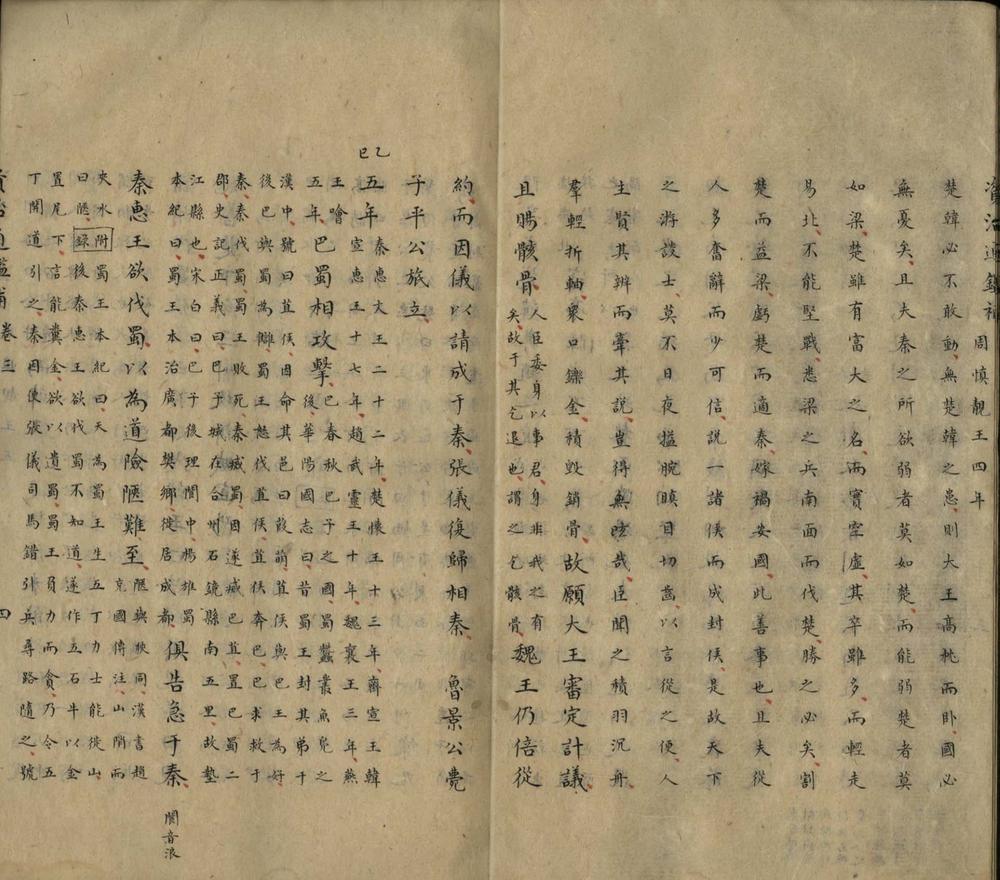 資治通鑑補 周慎靚王四年
楚韓必不敢動無楚韓之患則大王高枕而卧國必
無憂矣且夫秦之所欲弱者莫如楚而能弱楚者莫
如梁楚雖有富大之名而實空虛其卒雖多而輕走
易北不能堅戰悉梁之兵南面而伐楚勝之必矣割
楚而益梁虧楚而適秦嫁禍安國此善事也且夫從
人多奮辭而少可信說一諸侯而成封侯是故天下
之游談士莫不日夜搤腕瞋目切齒以言從之便人
主賢其辨而牽其說豈得無眩哉臣聞之積羽沉舟
羣輕折軸衆口鑠金積毀銷骨故願大王審定計議
且賜骸骨
人臣委身以事君身非我之有
矣故于其乞退也謂之乞骸骨
魏王仍倍從
約而因儀以請成于秦張儀復歸相秦魯景公薨
子平公旅立
乙巳
五年
秦惠文王二十二年楚懷王十三年齊宣王韓
宣惠王十七年趙武靈王十年魏襄王三年燕
王噲
五年
巴蜀相攻擊
巴春秋巴子之國蜀蠶叢魚鳧之
後華陽國志曰昔蜀王封其弟于
漢中號曰苴侯因命其邑曰葭萌苴侯與巴王為好
後巴與蜀為讎蜀王怒伐苴侯苴侯奔巴巴求救于
秦秦伐蜀蜀王敗死秦滅蜀因遂滅巴苴置巴蜀二
郡史記正義曰巴子城在合州石鏡縣南五里故墊
江縣也宋白曰巴子後理閬中楊雄蜀
本紀曰蜀王本治廣都樊鄉徙居成都
俱告急于秦
閬音浪
秦惠王欲伐蜀以為道險陿難至
陿與狹同漢書趙
充國傳注山陗而
夾水曰陿
附錄
蜀王本紀曰天為蜀王生五丁力士能徙山
後秦惠王欲伐蜀不如道遂作五石牛以金
置尾下言能糞金欲以遺蜀蜀王負力而貪乃令五
丁開道引之秦因使張儀司馬錯引兵尋路隨之號
資治通鑑補卷三 四